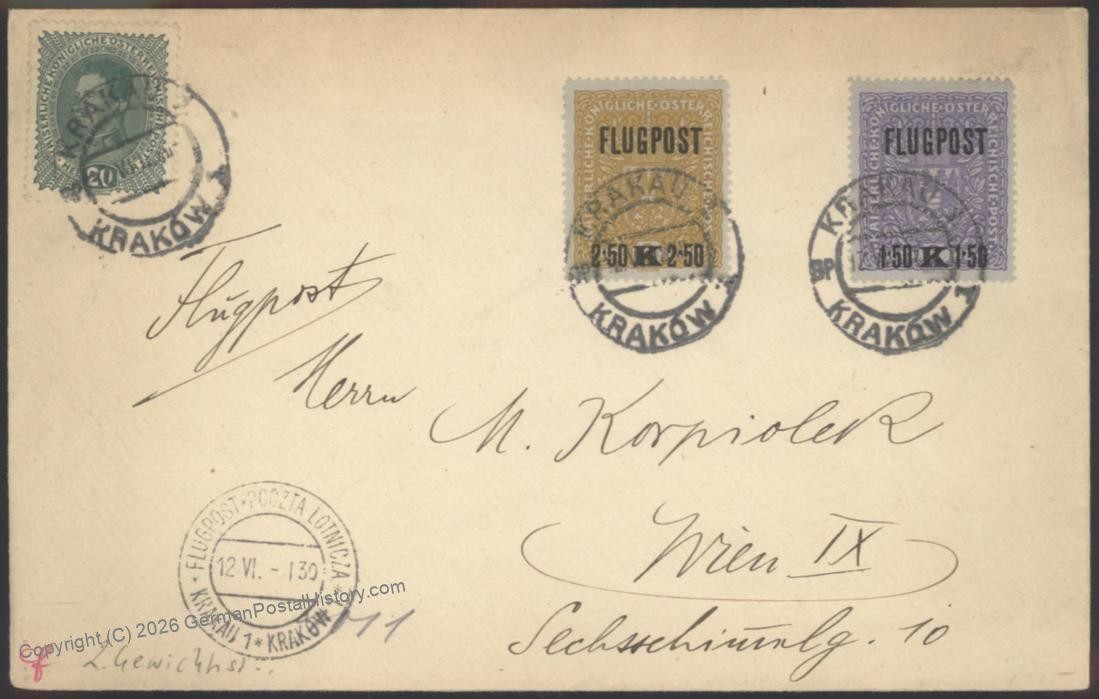 KAISERLICHE KÖNIGLICHE ÖSTERREICHISCHE POST
20
KRAKAU 1
KRAKÓW 1
KAISERLICHE KÖNIGLICHE ÖSTERREICHISCHE POST
FLUGPOST
2·50 K 2·50
KRAKAU 1
KRAKÓW 1
KAISERLICHE KÖNIGLICHE ÖSTERREICHISCHE POST
FLUGPOST
1·50 K 1·50
KRAKAU 1
9P
KRAKÓW 1
Flugpost
Herrn
M. Korpiolek
Wien IX
Sechsschimmelg. 10
* FLUGPOST·POCZTA LOTNICZA *
12 VI. - 130
KRAKAU 1 * KRAKÓW 1
11
Copyright (C) 2026 GermanPostalHistory.com
2. Gewichtst..